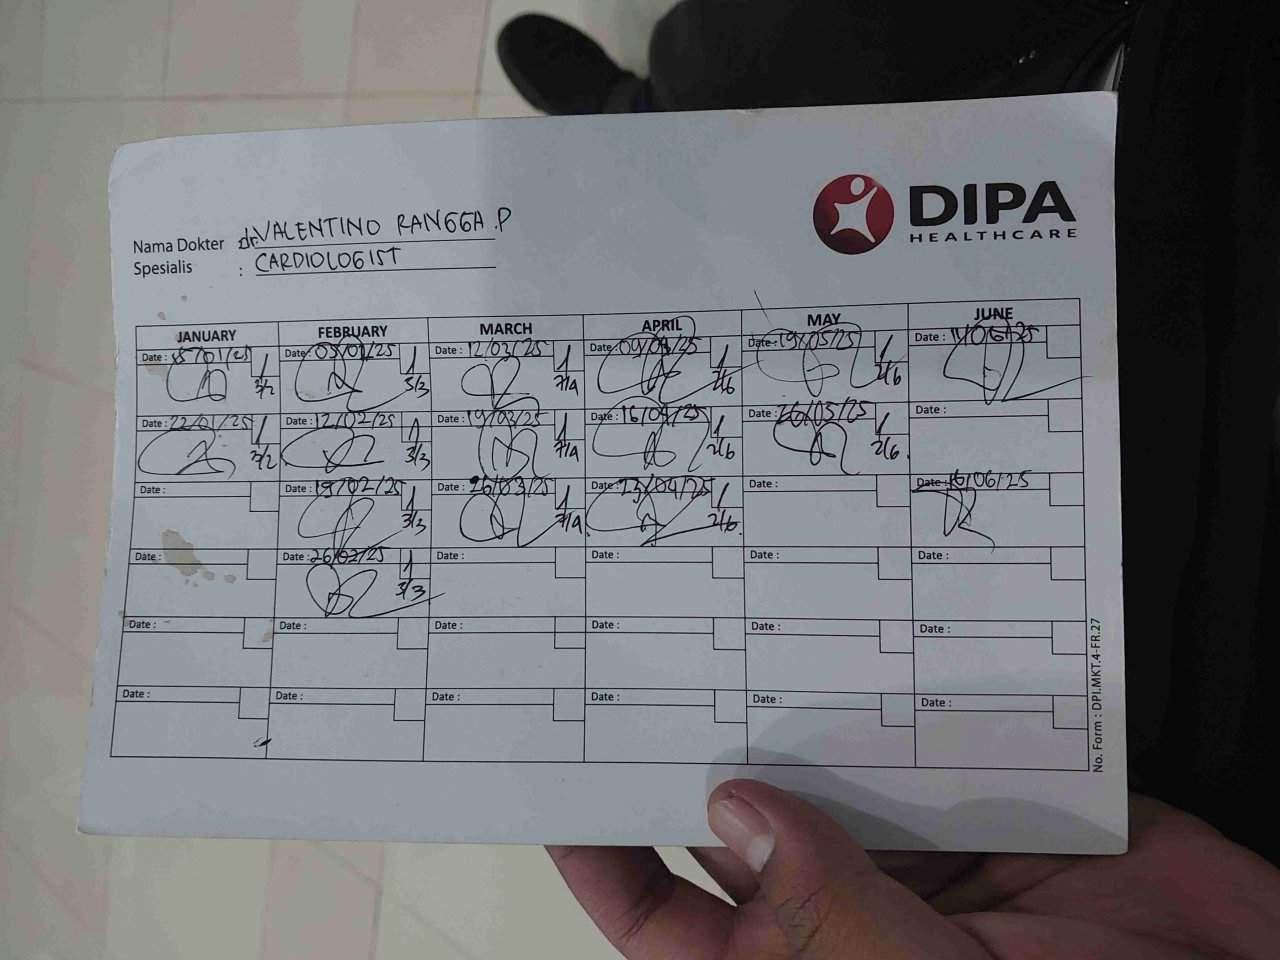 DIPA
HEALTHCARE
Nama Dokter : dr. VALENTINO RANGGA .P
Spesialis : CARDIOLOGIST
JANUARY FEBRUARY MARCH APRIL MAY JUNE
Date : 15/01/25 1 Date : 05/02/25 1 Date : 12/03/25 1 Date : 09/04/25 1 Date : 19/05/25 1 Date : 11/06/25
3/2 3/3 7/4 2/6 2/6
Date : 22/01/25 1 Date : 12/02/25 1 Date : 19/03/25 1 Date : 16/04/25 1 Date : 26/05/25 1 Date :
3/2 3/3 7/4 2/6 2/6
Date : Date : 19/02/25 1 Date : 26/03/25 1 Date : 23/04/25 1 Date : Date : 16/06/25
3/3 7/4 2/6
Date : Date : 26/02/25 1 Date : Date : Date : Date :
3/3
Date : Date : Date : Date : Date : Date :
Date : Date : Date : Date : Date : Date :
No. Form : DPI.MKT.4-FR.27